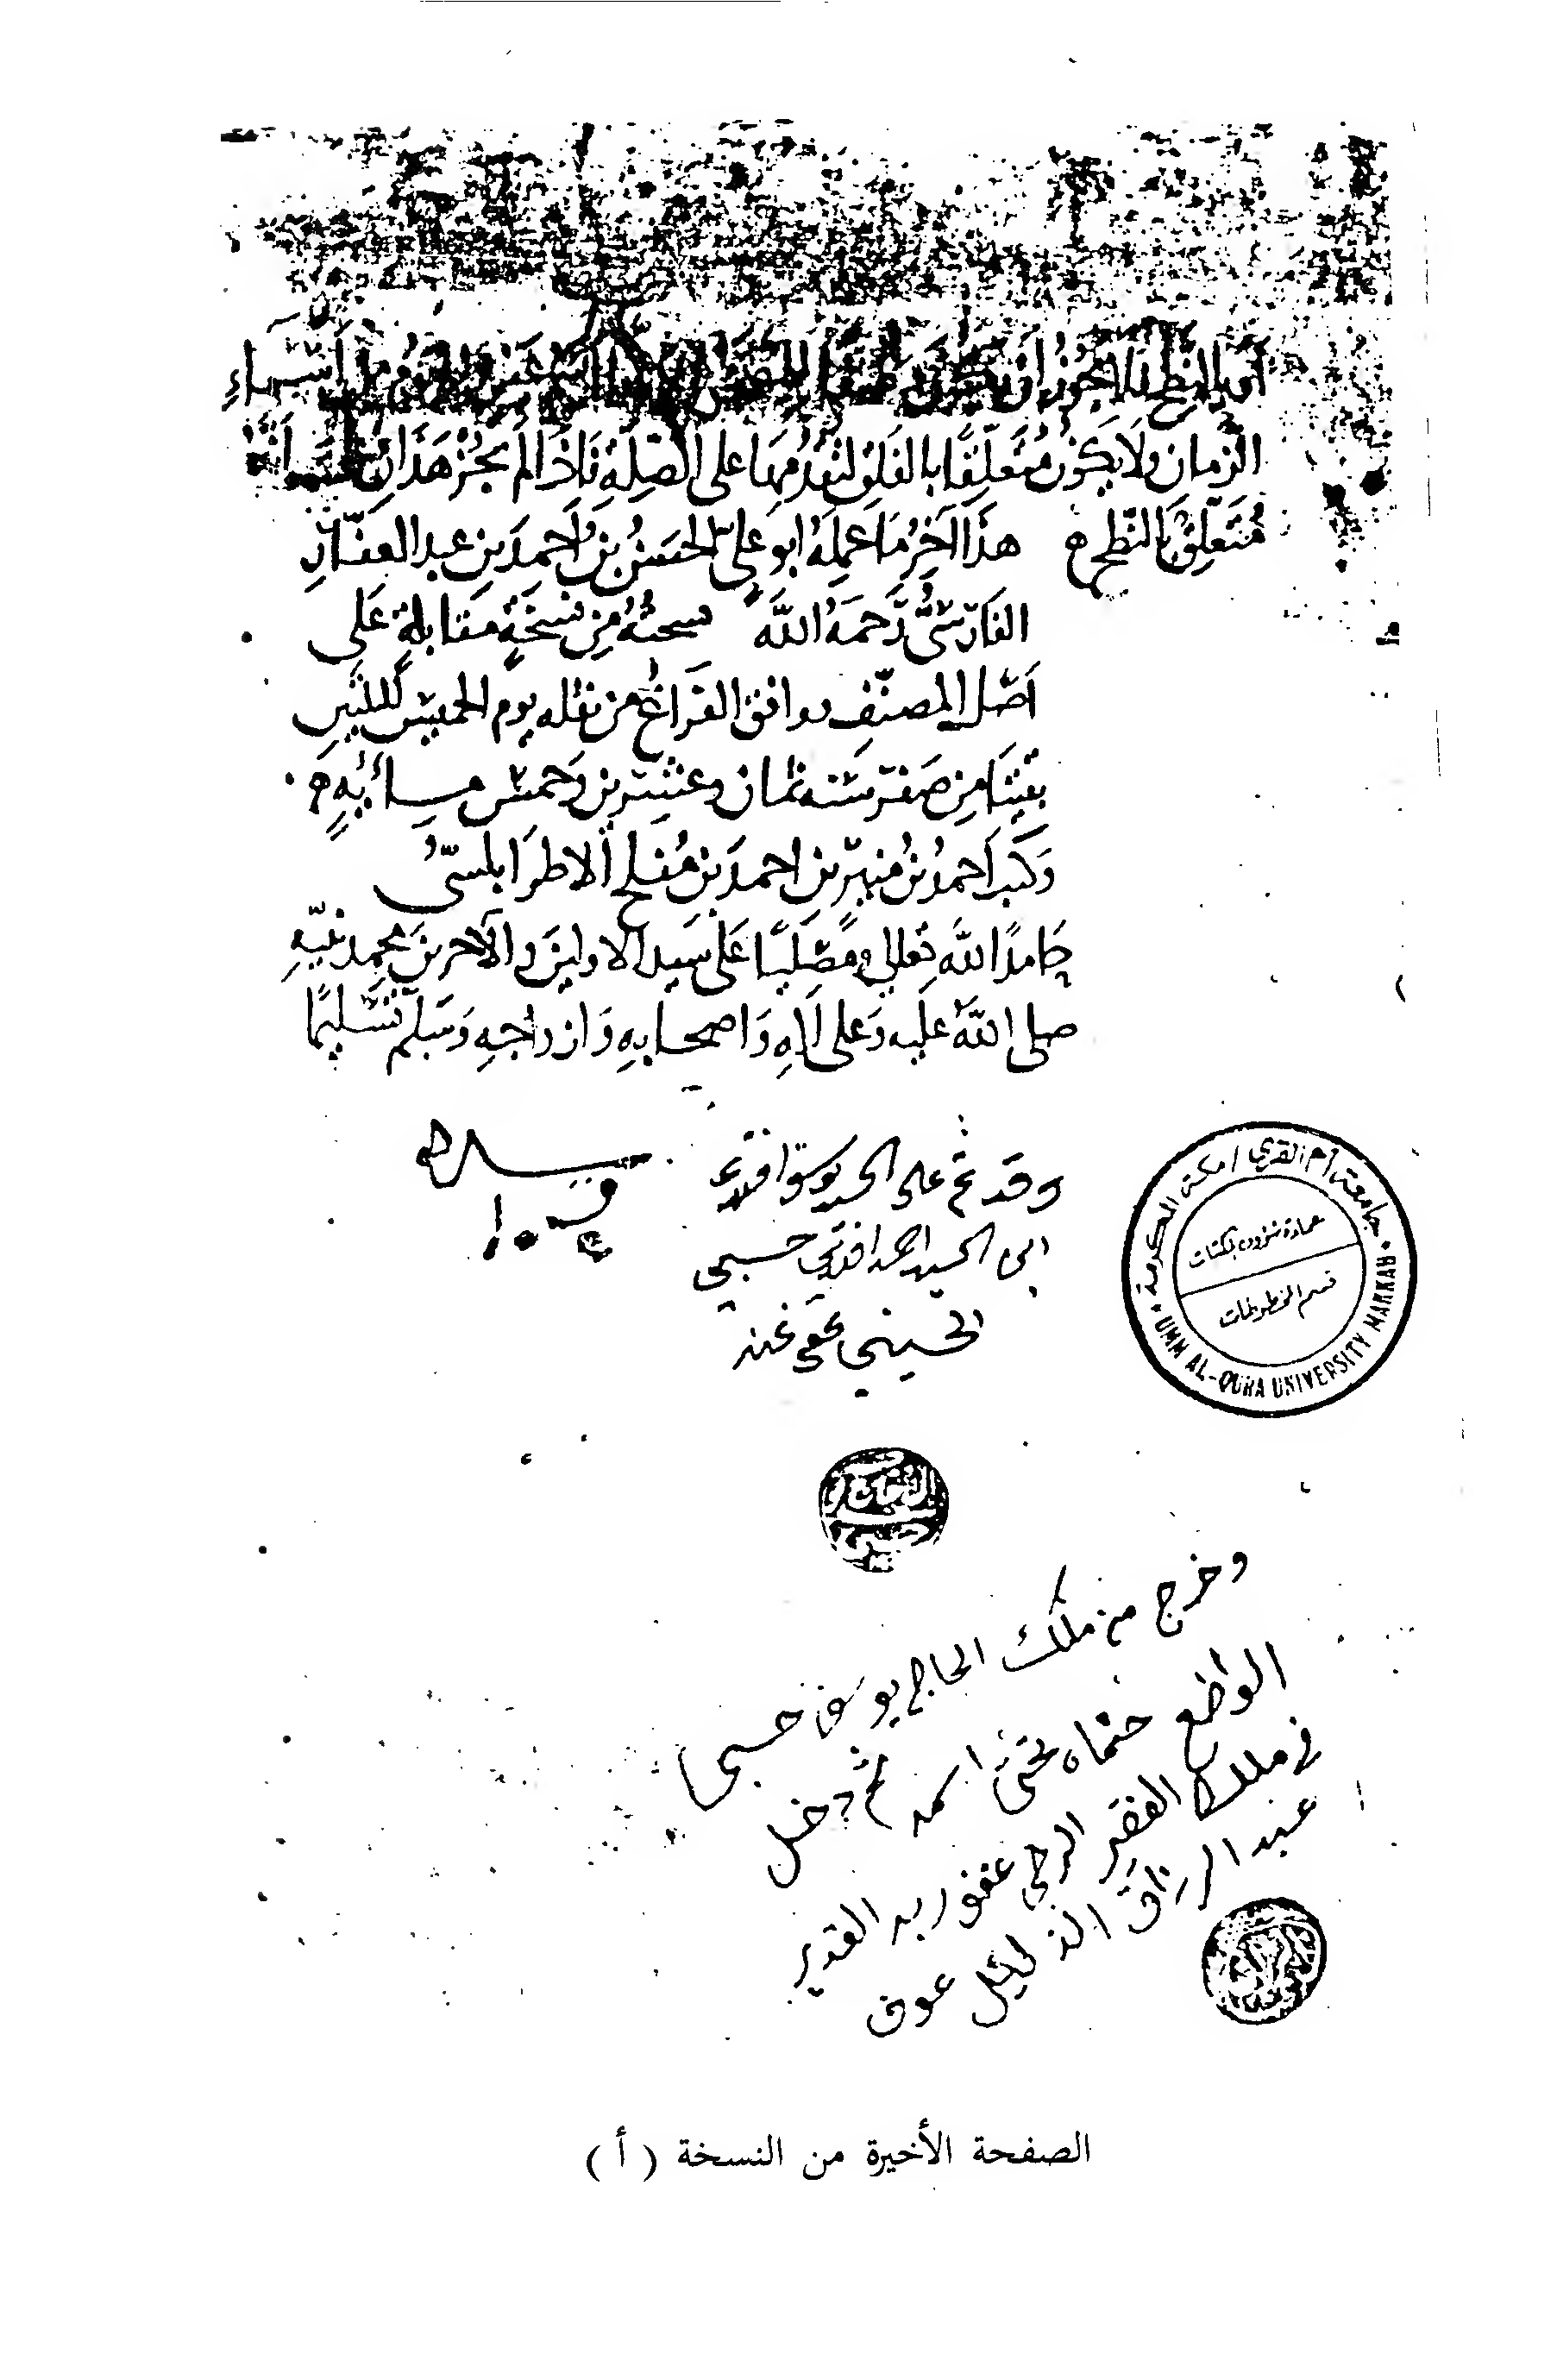 أو بالنطح فلا يجوز أن يكون متعلقا
الزمان ولا يكون مُتَعَلِّقًا بالفلق لتقدُمِهَا على الصِلَةِ فَاذَا لم يجُزْ هَذَا ثبت أنَّهُ
مُتَعَلِّقٌ بالنّطح ه هَذَا آخِرُ مَا عَمِلَهُ ابو علي الحَسَنُ بنُ أحمدَ بن عبد الغفّارِ
الفَارسىُّ رَّحمَهُ اللَّه نسختُهُ مِن نُسْخَةٍ مقابلةٍ عَلَى
اَصْل المصنّفِ ووافق الفَرَاغُ من نقله يوم الخميس لليلتين
بقيتَا مِن صَفَر سَنه ثمان وعشرين وخمس مِائةٍ ه
وَكَتبَ أحمدُ بنُ منيرِ بن احمدَ بن مُفلح الاطرابلسىُّ
حَامدًا اللَّهَ تعالى ومُصَلّيًا عَلَى سَيد الاولينَ والآخرينَ محمدٍ نبيّهِ
صلى اللهُ عليه وعلى آلِهِ وَاصحابِهِ وَازواجِهِ وَسَلم تَسْليمًا
وقد تم على السيد يوسف افندي
ابن السيد احمد افندي حسبي
الحسيني عفي عنه
سلاه
جامعة أم القرى / مكة المكرمة
عمادة شؤون المكتبات
قسم المخطوطات
UMM AL-QURA UNIVERSITY MAKKAH
وخرج من ملك الحاج يوسف حسبي
الواضع ختماه تحت اسمه ثم دخل
في ملك الفقير الراجي عفو ربه القدير
عبد الرزاق الذليل عوف
الصفحة الأخيرة من النسخة ( أ )